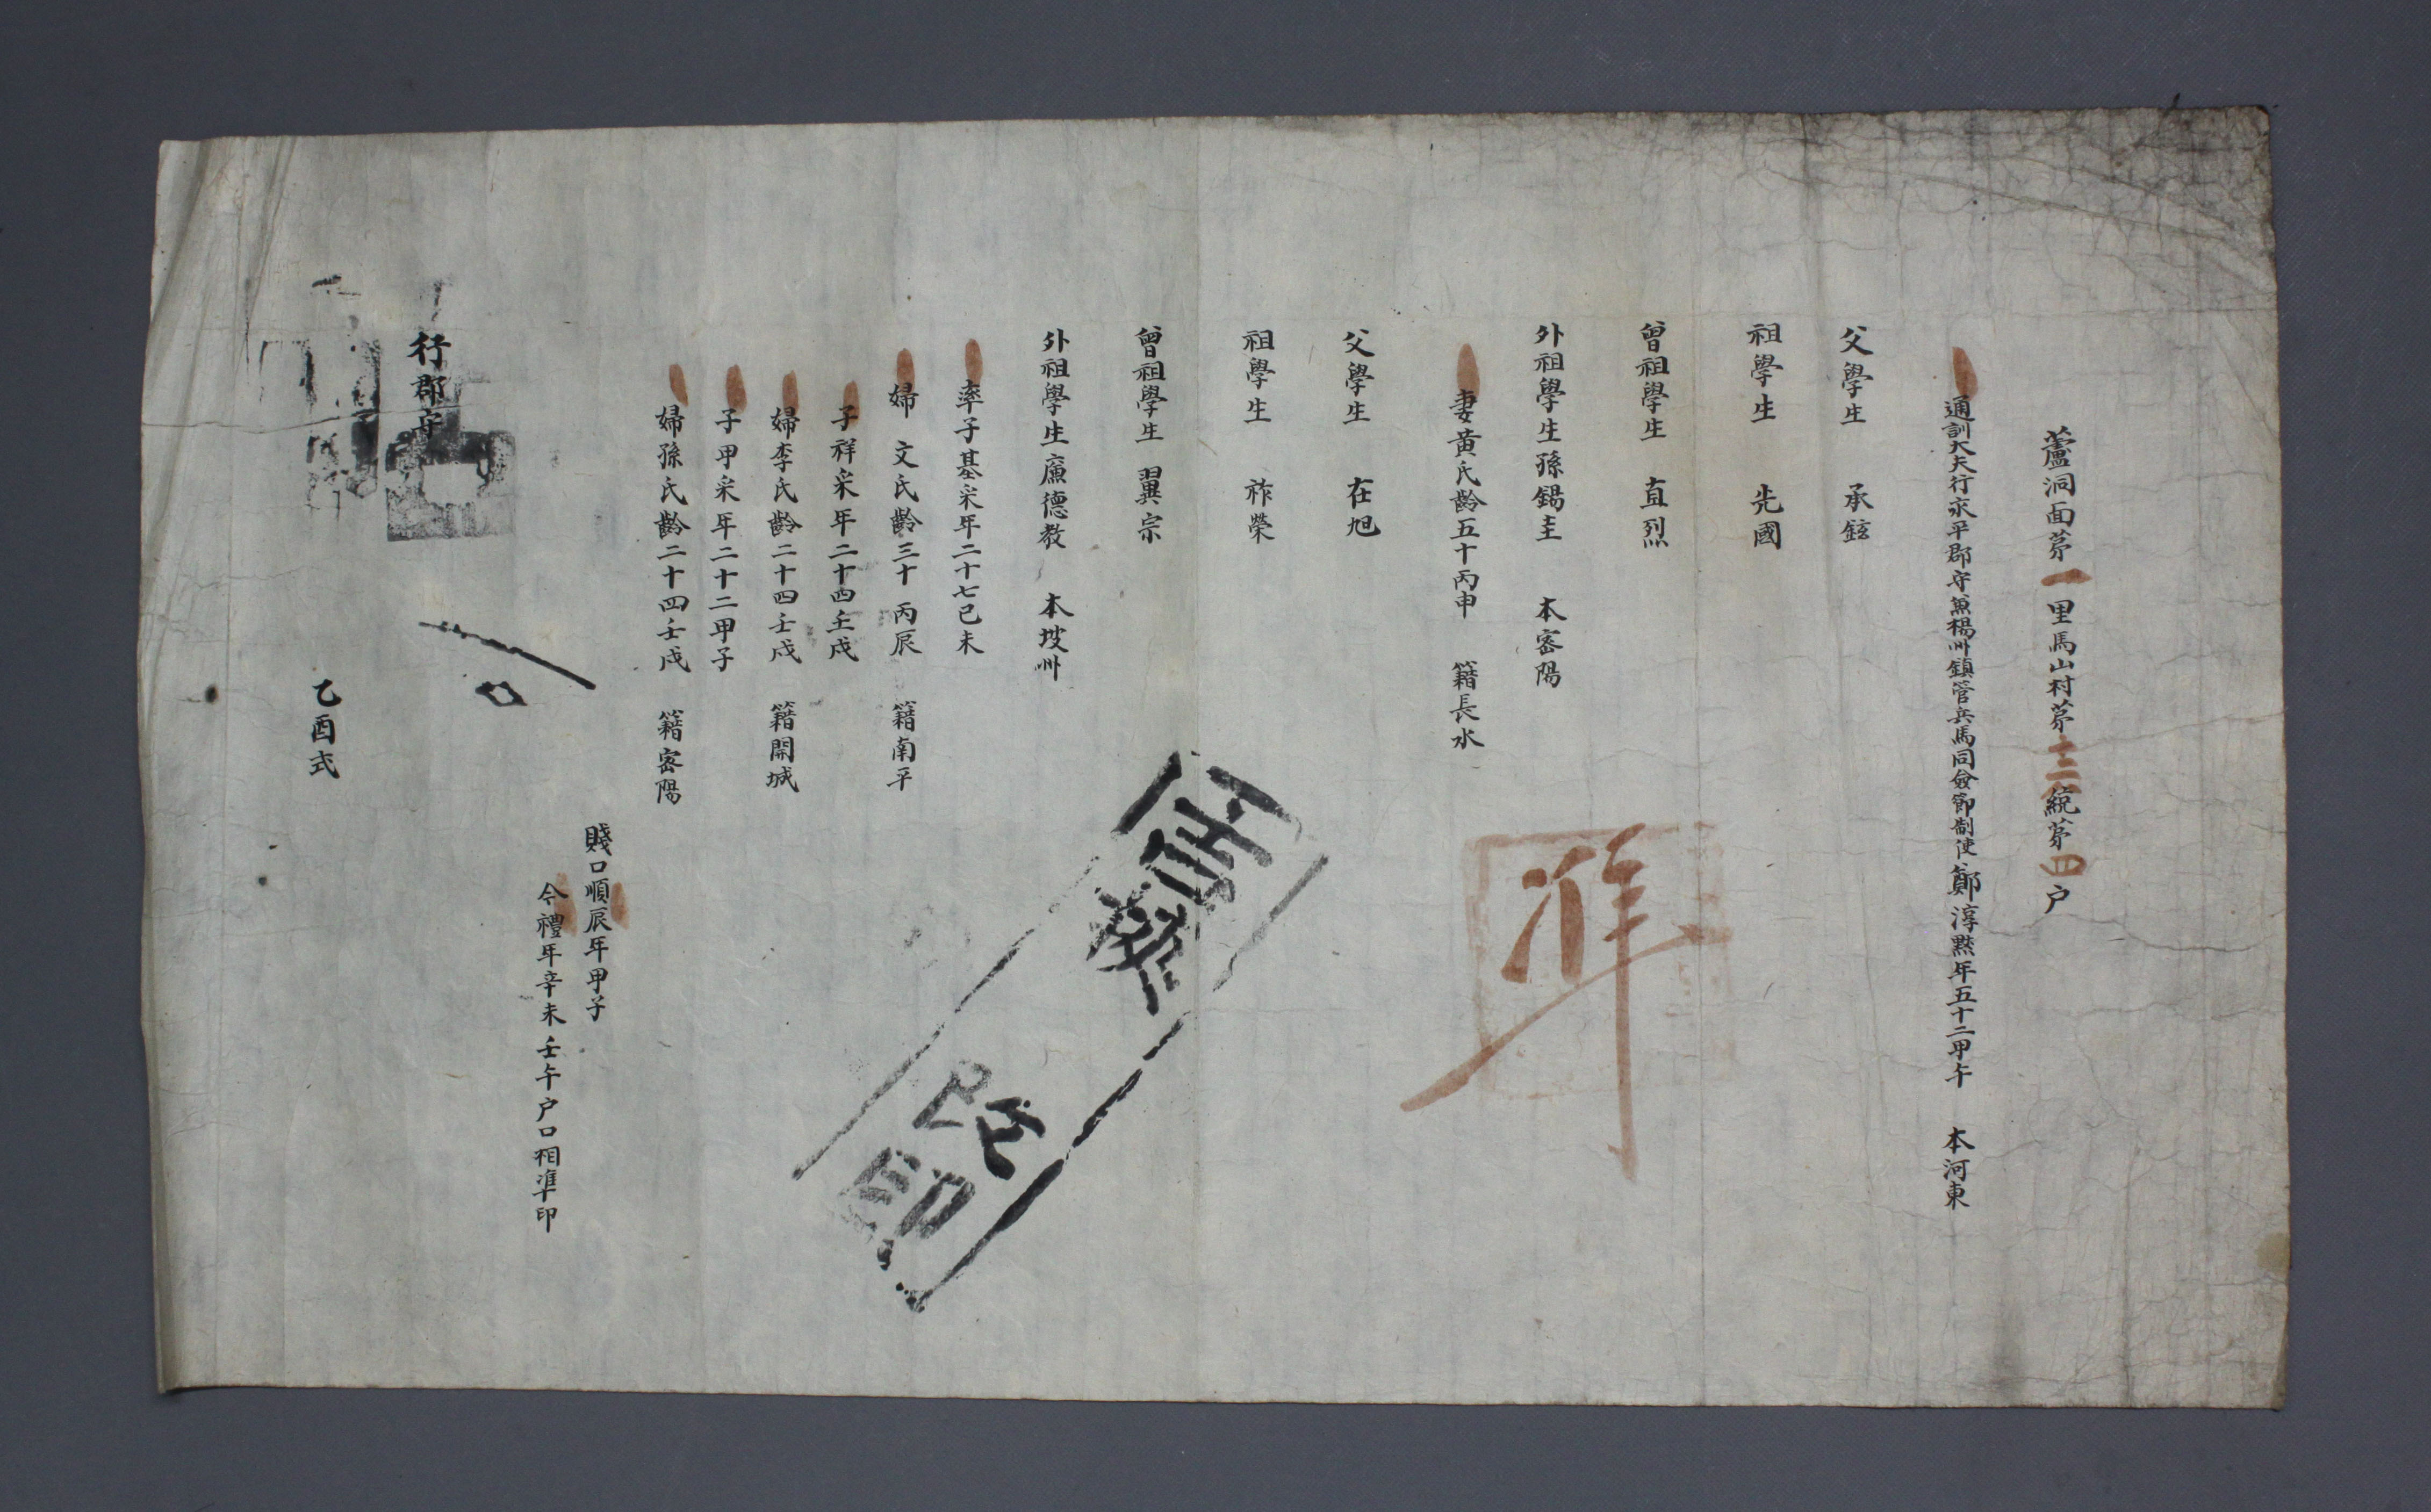 蘆洞面第一里馬山村第十三統第四户
通訓大夫行永平郡守兼楊州鎮管兵馬同僉節制使鄭淳黙年五十二甲午 本河東
父學生 承鉉
祖學生 先國
曾祖學生 直烈
外祖學生孫錫圭 本密陽
妻黃氏齡五十丙申 籍長水
父學生 在旭
祖學生 祚榮
曾祖學生 翼宗
外祖學生廉德教 本坡州
率子基采年二十七己未
婦 文氏齡三十 丙辰 籍南平
子祥采年二十四壬戌
婦李氏齡二十四壬戌 籍開城
子甲采年二十二甲子
婦孫氏齡二十四壬戌 籍密陽
賤口順辰年甲子
今禮年辛未 壬午户口相準印
行郡守
乙酉式
準
改印